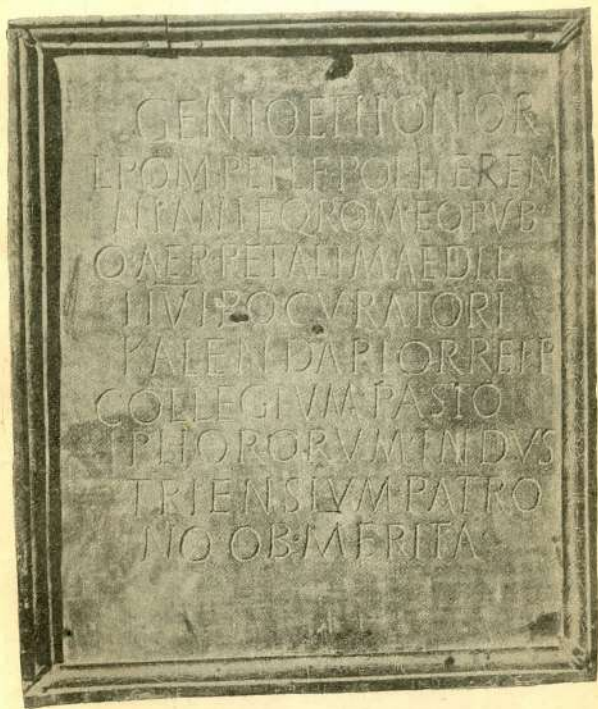 GENIO ET HONOR
L·POMPEI L F POL HEREN
NIANI EQ ROM·EQ PVB
Q·AER P ET ALIM AEDIL
IIVIR OCVRATORI
KALENDARIOR REI P
COLLEGIVM PASTO
PHORORVM·INDVS
TRIENSIVM·PATRO
NO OB·MERITA